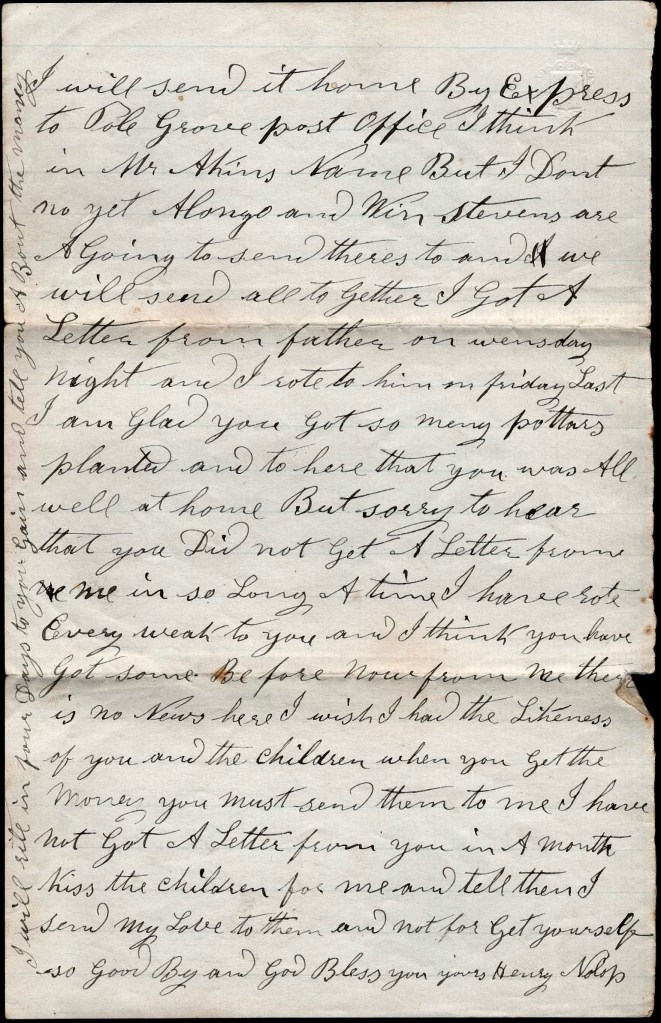 I will send it home By Express
to Pole Grove post Office I think
in Mr Akins Name But I Dont
no yet Alongo and Win stevens are
A Going to send theres to and we
will send all to Gether I Got A
Letter from father on wensday
Night and I rote to him on friday Last
I am Glad you Got so meny pottars
planted and to here that you was All
well at home But sorry to hear
that you Did not Get A Letter from
me in so Long A time I have rote
Every weak to you and I think you have
Got some Before Now from me ther
is no News here I wish I had the Likeness
of you and the children when you Get the
Money you must send them to me I have
not Got A Letter from you in A month
Kiss the children for me and tell then I
send my Love to them and not for Get yourself
so Good By and God Bless you yours Henry
I will rite in four Days to you Gain and tell you A Bout the money